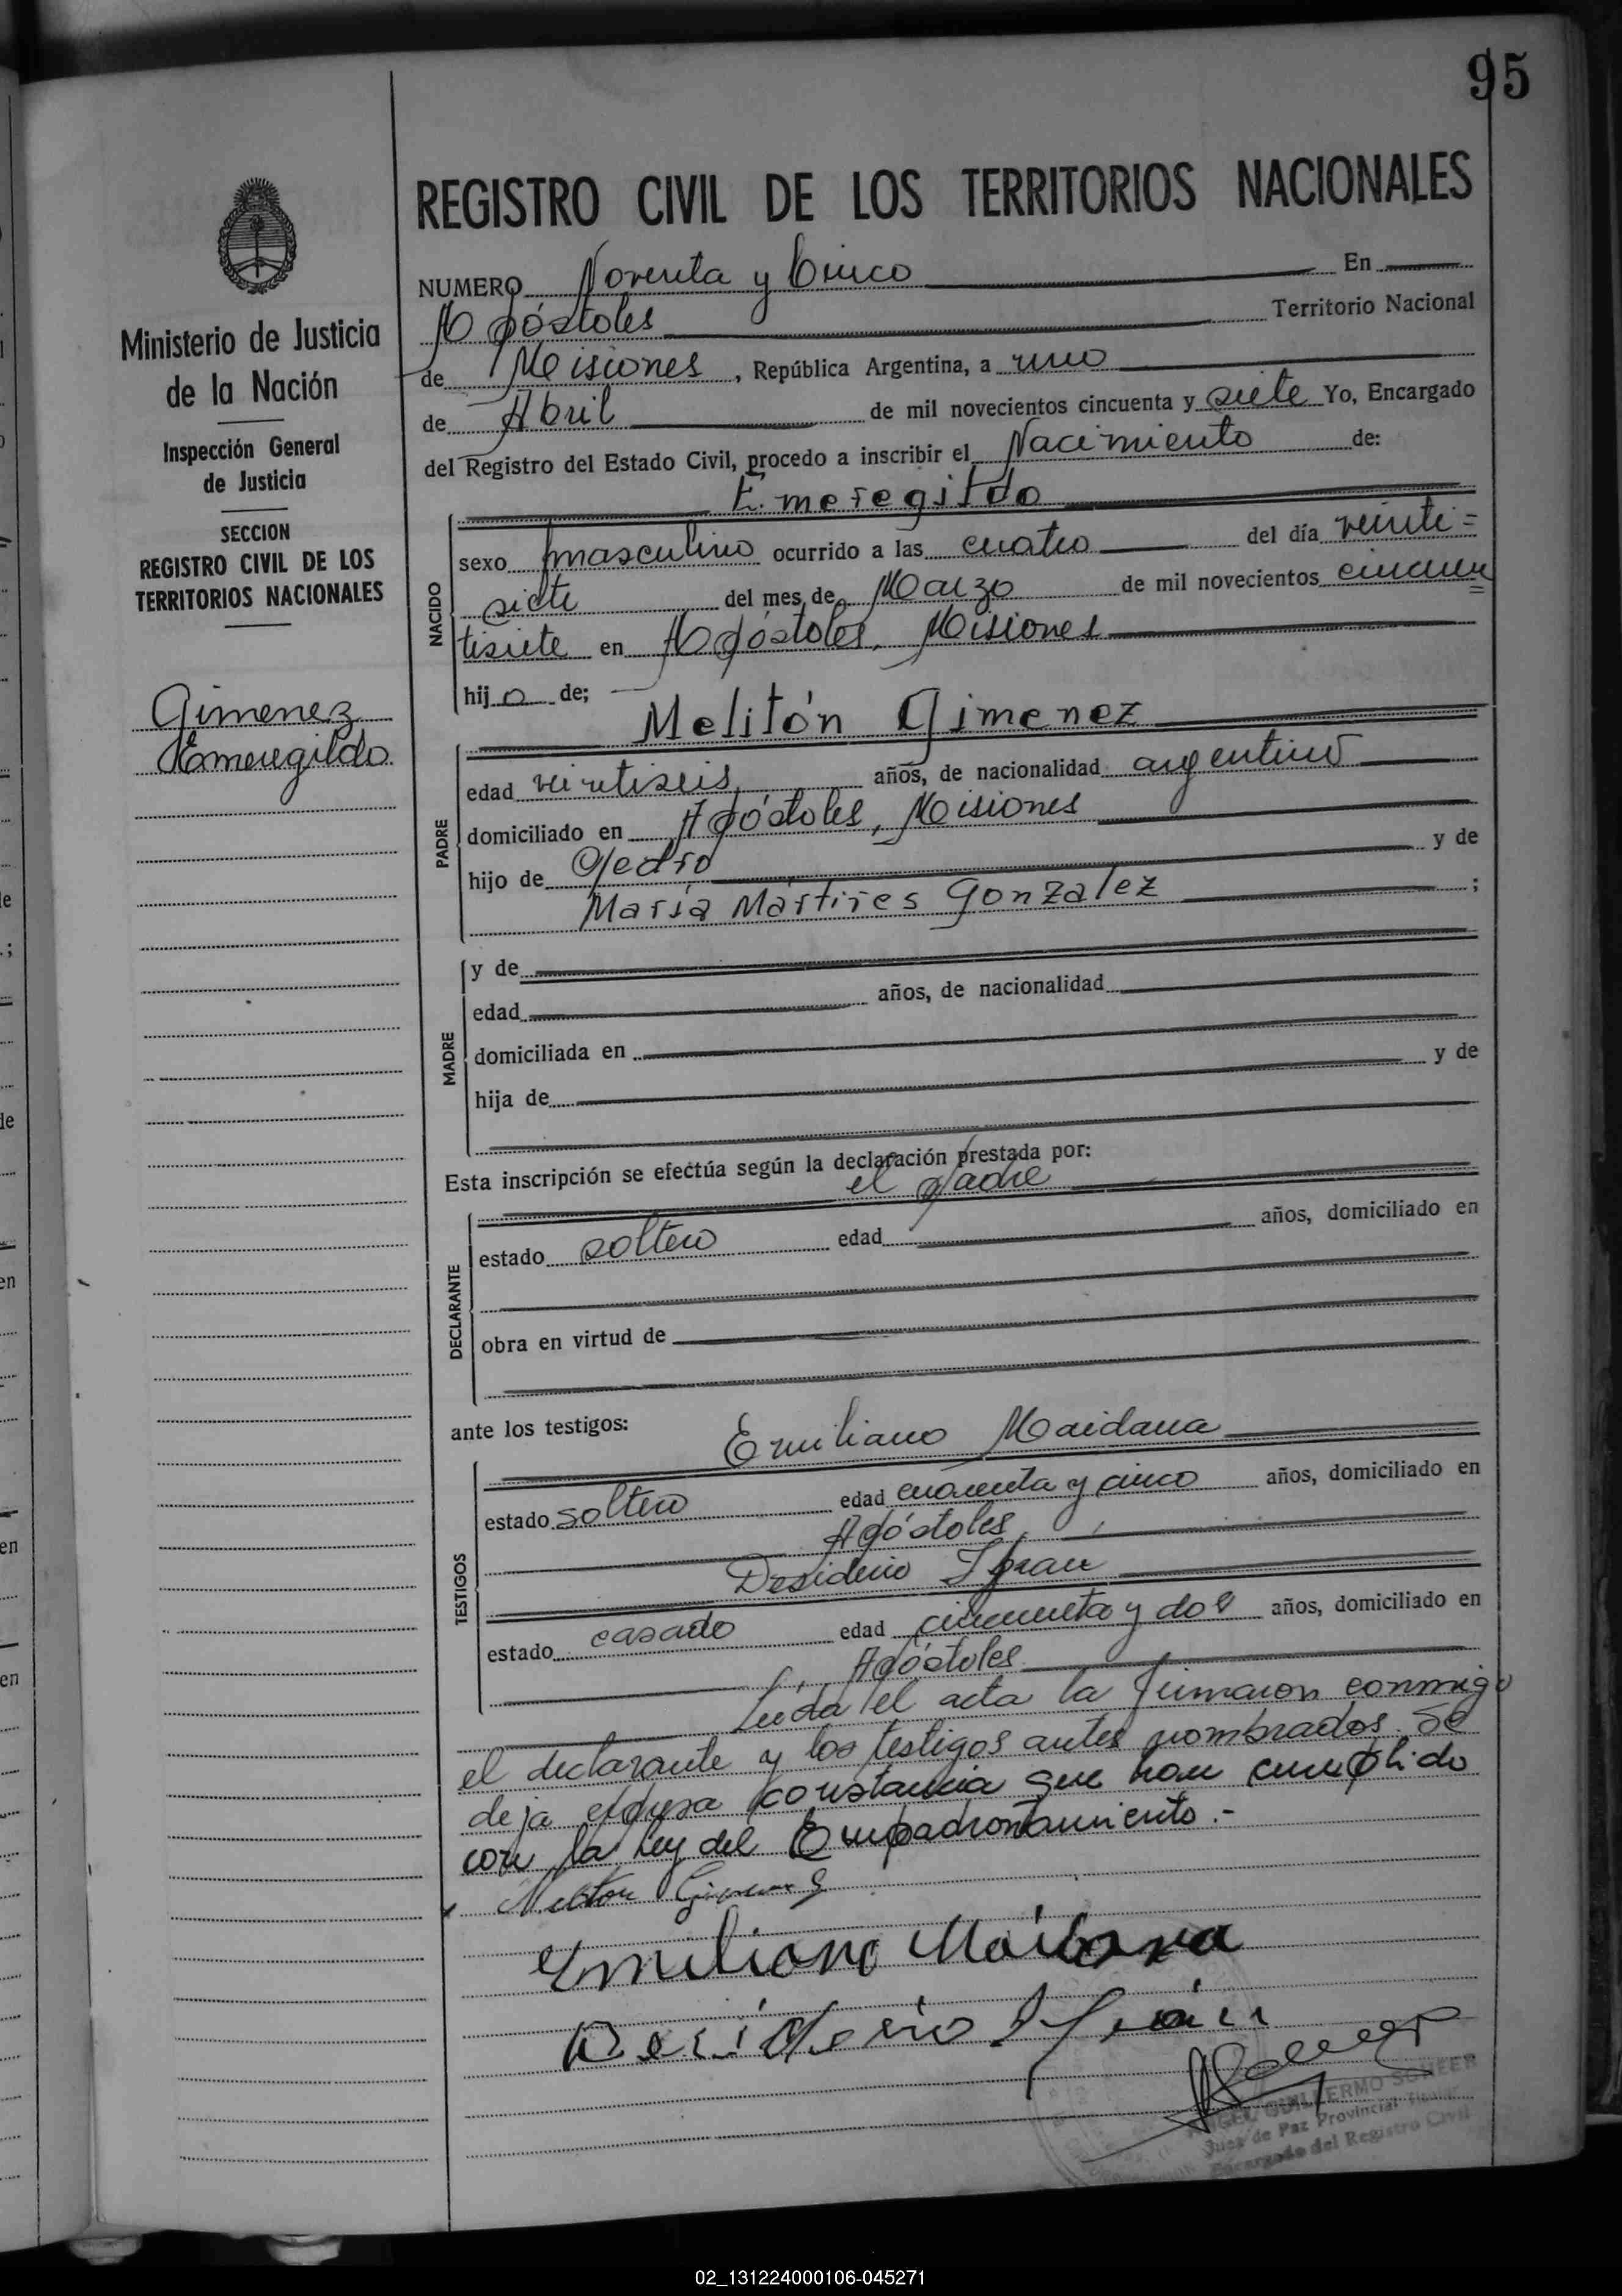 95
REGISTRO CIVIL DE LOS TERRITORIOS NACIONALES
Ministerio de Justicia
de la Nación
Inspección General
de Justicia
SECCION
REGISTRO CIVIL DE LOS
TERRITORIOS NACIONALES
Gimenez
Emeregildo
NUMERO Noventa y Cinco En
Apóstoles Territorio Nacional
de Misiones, República Argentina, a uno
de Abril de mil novecientos cincuenta y siete Yo, Encargado
del Registro del Estado Civil, procedo a inscribir el Nacimiento de:
Emeregildo
NACIDO
sexo masculino ocurrido a las cuatro del día veinti=
siete del mes de Marzo de mil novecientos cincuen
tisiete en Apóstoles, Misiones
hijo de;
Melitón Gimenez
PADRE
edad veintiseis años, de nacionalidad argentino
domiciliado en Apóstoles, Misiones
hijo de Pedro y de
María Mártires Gonzalez ;
MADRE
y de
edad años, de nacionalidad
domiciliada en
hija de y de
Esta inscripción se efectúa según la declaración prestada por:
el padre
DECLARANTE
estado soltero edad años, domiciliado en
obra en virtud de
ante los testigos:
Emiliano Maidana
TESTIGOS
estado soltero edad cuarenta y cinco años, domiciliado en
Apóstoles
Desiderio
estado casado edad cincuenta y dos años, domiciliado en
Apóstoles
Leída el acta la firmaron conmigo
el declarante y los testigos antes nombrados. Se
deja expresa constancia que han cumplido
con la Ley del Empadronamiento.-
Meliton Gimenez
Emiliano Maidana
Desiderio
ANGEL GUILLERMO SCHEER
Juez de Paz Provincial Titular
Encargado del Registro Civil
02_131224000106-045271